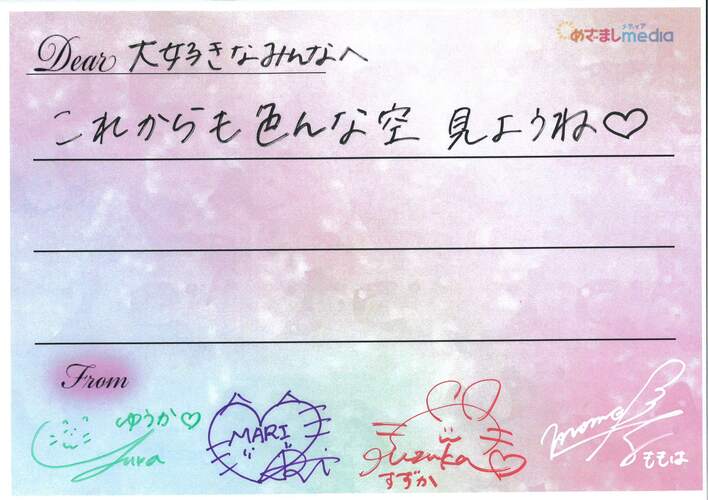 めざましmedia
メディア
Dear 大好きなみんなへ
これからも色んな空 見ようね♡
From
ゆうか♡
MARI
Suzuka
すずか
momo
ももは